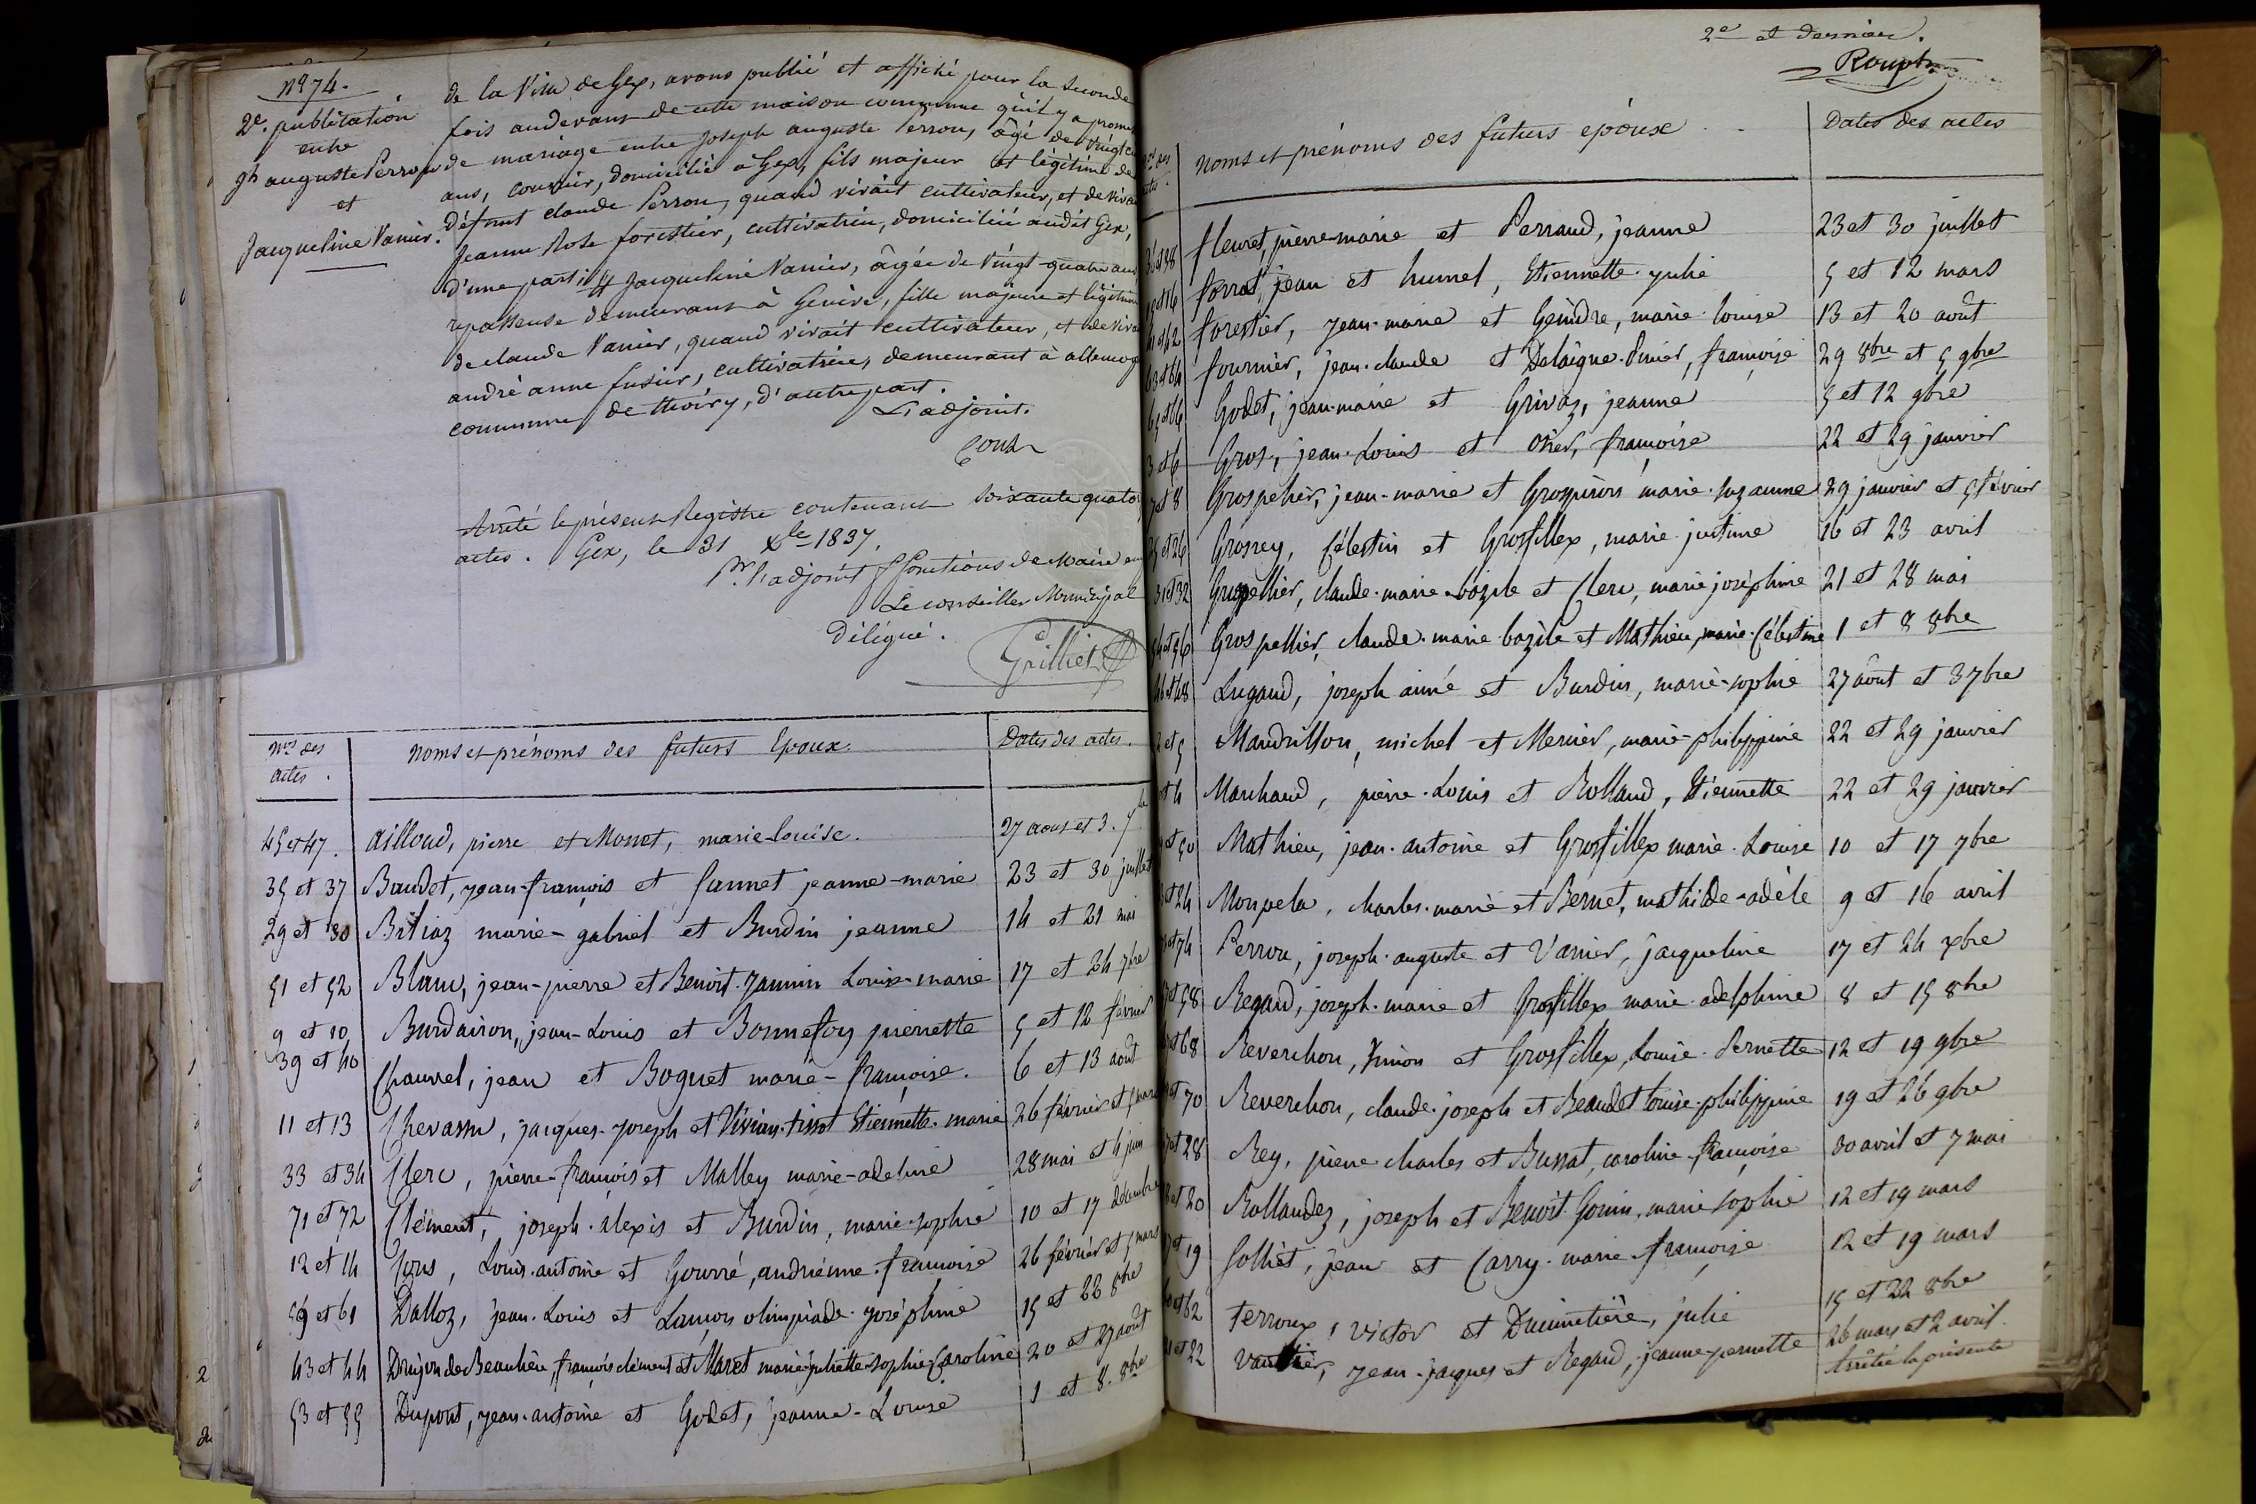 n° 74.
2e. publication
entre
Jh auguste Perrou
et
Jacqueline Vanier.
de la Ville de Gex, avons publié et affiché pour la seconde
fois audevant de cette maison commune qu'il y a promesse
de mariage entre Joseph auguste Perrou, âgé de vingt
ans, domicilié à Gex, fils majeur et légitime de
défunt claude Perrou, quand vivait cultivateur, et de vivante
Jeanne Rose forestier, cultivatrice, domiciliée audit Gex,
d'une part; et Jacqueline Vanier, âgée de vingt-quatre ans,
repasseuse demeurant à Genève, fille majeure et légitime
de claude Vanier, quand vivait cultivateur, et de vivante
andréanne fusier, cultivatrice, demeurant à allemogne
commune de thoiry, d'autre part.
L'adjoint.
Arrêté le présent Registre contenant soixante quatorze
actes. Gex, le 31 Xbre 1837.
Pr. l'adjoint ff fonctions de Maire
Le conseiller Municipal
Délégué.
Grilliet
Nos des actes. noms et prénoms des futurs Epoux. Dates des actes.
45 et 47. ailloud, pierre et Monet, marie-louise. 27 aout et 3. 7bre
35 et 37 Baudet, jean-françois et fannet jeanne-marie 23 et 30 juillet
29 et 30 Bitiaz marie-gabriel et Burdin jeanne 14 et 21 mai
51 et 52 Blanc, jean-pierre et Benoit-Jannin Louise-marie 17 et 24 7bre
9 et 10 Burdairon, jean-Louis et Bonnefoy pierrette 5 et 12 février
39 et 40 Chauvel, jean et Boguet marie-françoise. 6 et 13 août
11 et 13 Chevassu, jacques-joseph et Vivian-tissot Etiennette-marie 26 février et 5 mars
33 et 34 Clerc, pierre-françois et Malley marie-adeline 28 mai et 4 juin
71 et 72 Clément, joseph-alexis et Burdin, marie-sophie 10 et 17 décembre
12 et 14 Louis-antoine et Gouvré, andriénne-françoise 26 février et 5 mars
59 et 61 Dalloz, jean-Louis et Lançon olimpiade-joséphine 15 et 22 8bre
43 et 44 Doujon de Beaulieu, françois clément et Maret marie-juliette-sophie-Caroline 20 et 27 août
53 et 55 Dupont, jean-antoine et Godet, jeanne-Louise 1 et 8. 8bre
2e et dernier.
Nos des actes. Noms et prénoms des futurs epoux Dates des actes
36 et 38 fleuret, pierre-marie et Perraud, jeanne 23 et 30 juillet
15 et 16 forrat, jean et humel, Etiennette-julie 5 et 12 mars
41 et 42 forestier, jean-marie et Geindre, marie-louise 13 et 20 août
63 et 64 fournier, jean-claude et françoise 29 8bre et 5 9bre
65 et 66 Godet, jean-marie et Grivaz, jeanne 5 et 12 9bre
3 et 6 Gros, jean-Louis et françoise 22 et 29 janvier
7 et 8 Grospelier, jean-marie et marie-suzanne 29 janvier et 5 février
25 et 26 Grosrey, Célestin et Grosfillex, marie-justine 16 et 23 avril
31 et 32 Grospellier, claude-marie-bazile et Clerc, marie joséphine 21 et 28 mai
54 et 56 Grospellier, claude-marie bazile et Mathieu, marie-Célestine 1 et 8 8bre
46 et 48 Lugaud, joseph aimé et Burdin, marie-sophie 27 août et 3 7bre
2 et 5 Mandrillon, michel et Mercier, marie-philippine 22 et 29 janvier
et 4 Marchand, pierre-Louis et Rolland, Etiennette 22 et 29 janvier
et 50 Mathieu, jean-antoine et Grosfillex marie-Louise 10 et 17 7bre
et 24 Monpela, charles-marie et Bernet, mathilde-adèle 9 et 16 avril
et 74 Perrou, joseph-auguste et Vanier, jacqueline 17 et 24 xbre
et 58 Regard, joseph-marie et Grosfillex marie-adelphine 8 et 15 8bre
et 68 Reverchon, Simon et Grosfillex, Louise-Pernette 12 et 19 9bre
et 70 Reverchon, claude-joseph et Beaudet louise-philippine 19 et 26 9bre
et 28 Rey, pierre charles et Bussat, caroline-françoise 30 avril et 7 mai
et 20 Rollandez, joseph et Benoit-Gonin, marie sophie 12 et 19 mars
et 19 Solliet, jean et Carry-marie-françoise 12 et 19 mars
et 62 Terroux, victor et Ducimetière, julie 15 et 22 8bre
et 22 Vauthier, jean-jacques et Regard, jeanne-pernette 26 mars et 2 avril.
Arrêtée la présente